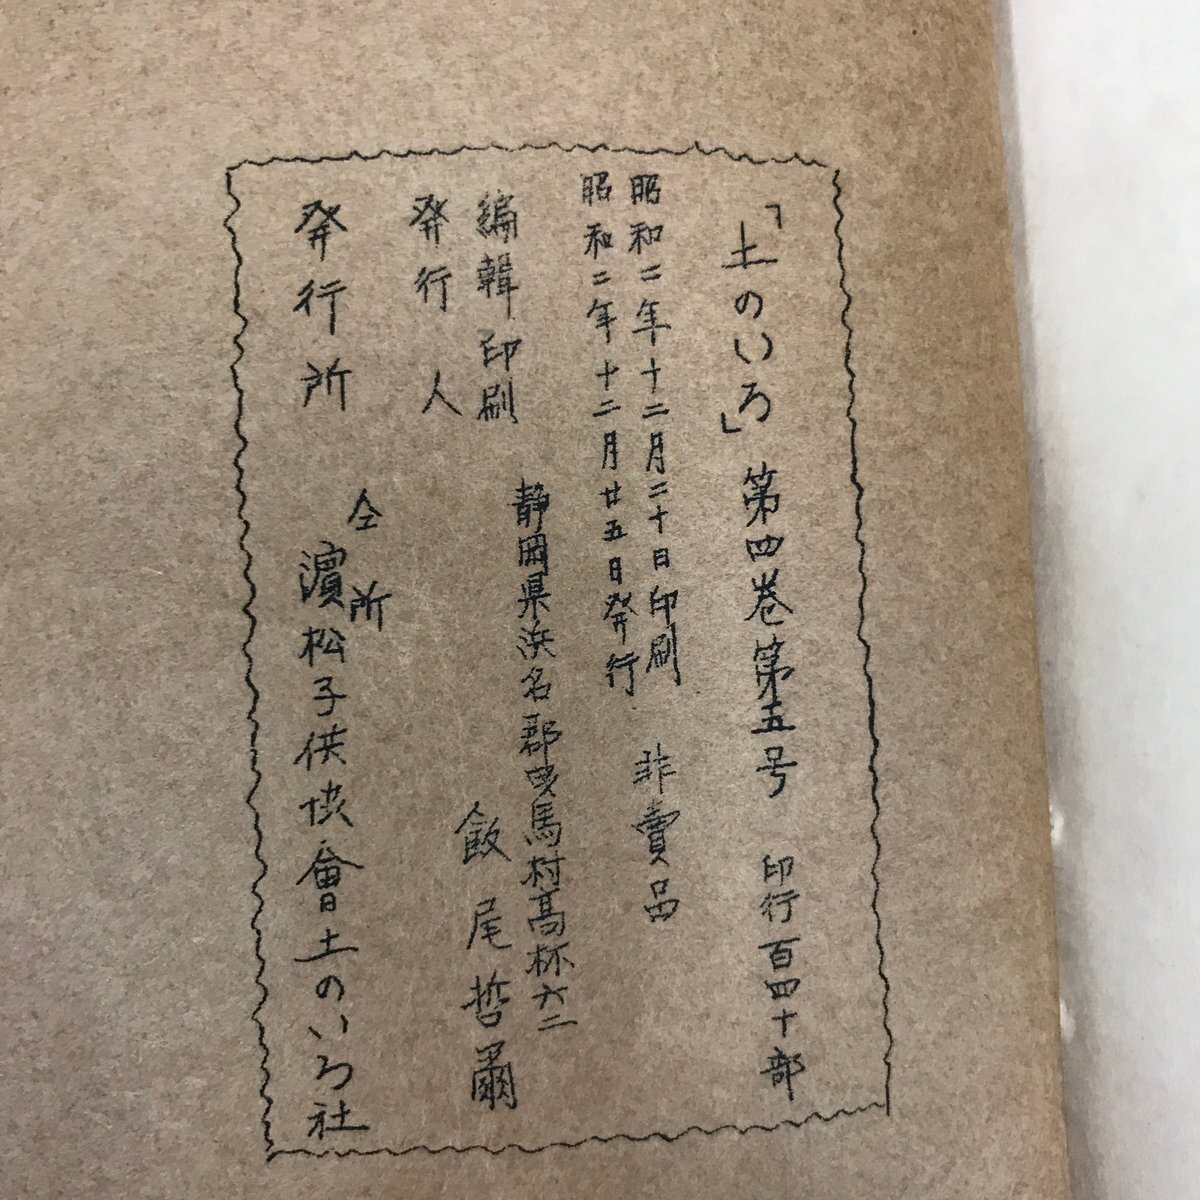 「土のいろ」第四巻第五号 印行百四十部
昭和二年十二月二十日印刷
昭和二年十二月廿五日発行 非賣品
編輯印刷
発行人
静岡県浜名郡曳馬村高林六二
飯尾哲爾
発行所
仝所
濱松子供協會土のいろ社